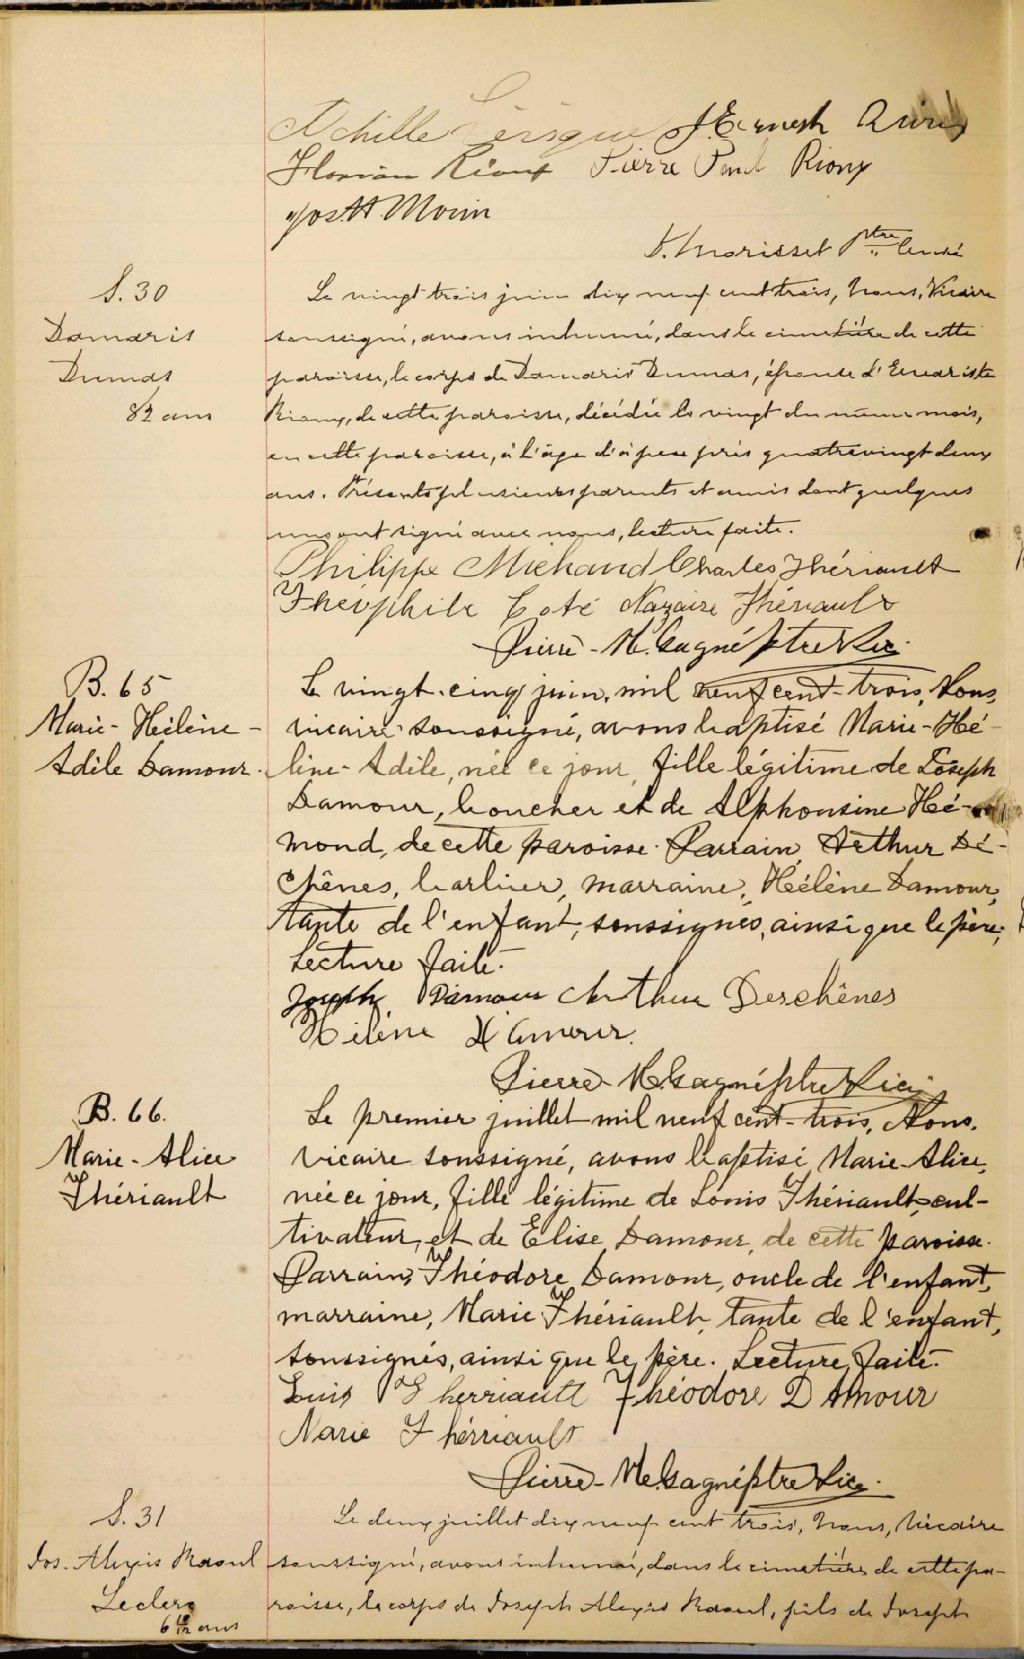 Achille Lévesque J. Ernest Rioux
Florian Rioux Pierre Paul Rioux
Jos. H. Morin
Morisset Ptre Curé
S. 30
Damaris
Dumas
82 ans
Le vingt trois juin dix neuf cent trois, Nous, Vicaire
soussigné, avons inhumé, dans le cimetière de cette
paroisse, le corps de Damaris Dumas, épouse d'Evariste
Rioux, de cette paroisse, décédée le vingt du même mois,
en cette paroisse, à l'âge d'à peu près quatrevingt deux
ans. Présents plusieurs parents et amis dont quelques
uns ont signé avec nous, lecture faite.
Philippe Michaud Charles Thériault
Théophile Coté Nazaire Thériault
Pierre-M. Gagné ptre Vic.
B. 65
Marie-Hélène-
Adèle Damour.
Le vingt-cinq juin, mil neuf cent-trois, Nous,
vicaire soussigné, avons baptisé Marie-Hé-
lène-Adèle, née ce jour, fille légitime de Joseph
Damour, boucher et de Alphonsine Hé-
mond, de cette paroisse. Parrain, Arthur Dé-
chênes, barbier, marraine, Hélène Damour,
tante de l'enfant, soussignés, ainsi que le père;
Lecture faite.
Joseph Damour Arthur Deschênes
Hélène D'Amour.
Pierre-M. Gagné ptre Vic.
B. 66.
Marie-Alice
Thériault
Le premier juillet mil neuf cent-trois, Nous,
vicaire soussigné, avons baptisé Marie-Alice,
née ce jour, fille légitime de Louis Thériault, cul-
tivateur, et de Elise Damour, de cette paroisse.
Parrain, Théodore Damour, oncle de l'enfant,
marraine, Marie Thériault, tante de l'enfant,
soussignés, ainsi que le père. Lecture faite.
Luis Therriault Théodore D Amour
Marie Thérriault
Pierre-M. Gagné ptre Vic.
S. 31
Jos. Alexis Raoul
Leclerc
6 ans
Le deux juillet dix neuf cent trois, Nous, Vicaire
soussigné, avons inhumé, dans le cimetière de cette pa-
roisse, le corps de Joseph Alexis Raoul, fils de Joseph